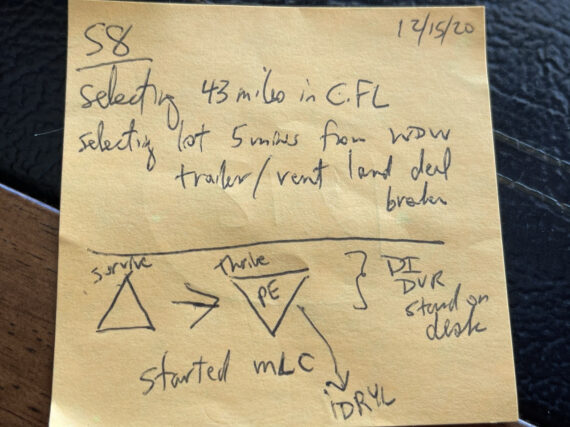 12/15/20
S8
Selecting 43 miles in C.FL
selecting lot 5 mins from WDW
trailer/rent land deal
broken
Survive
Thrive
PE
DI
DVR
stand on
desk
started mLC
iDRYL